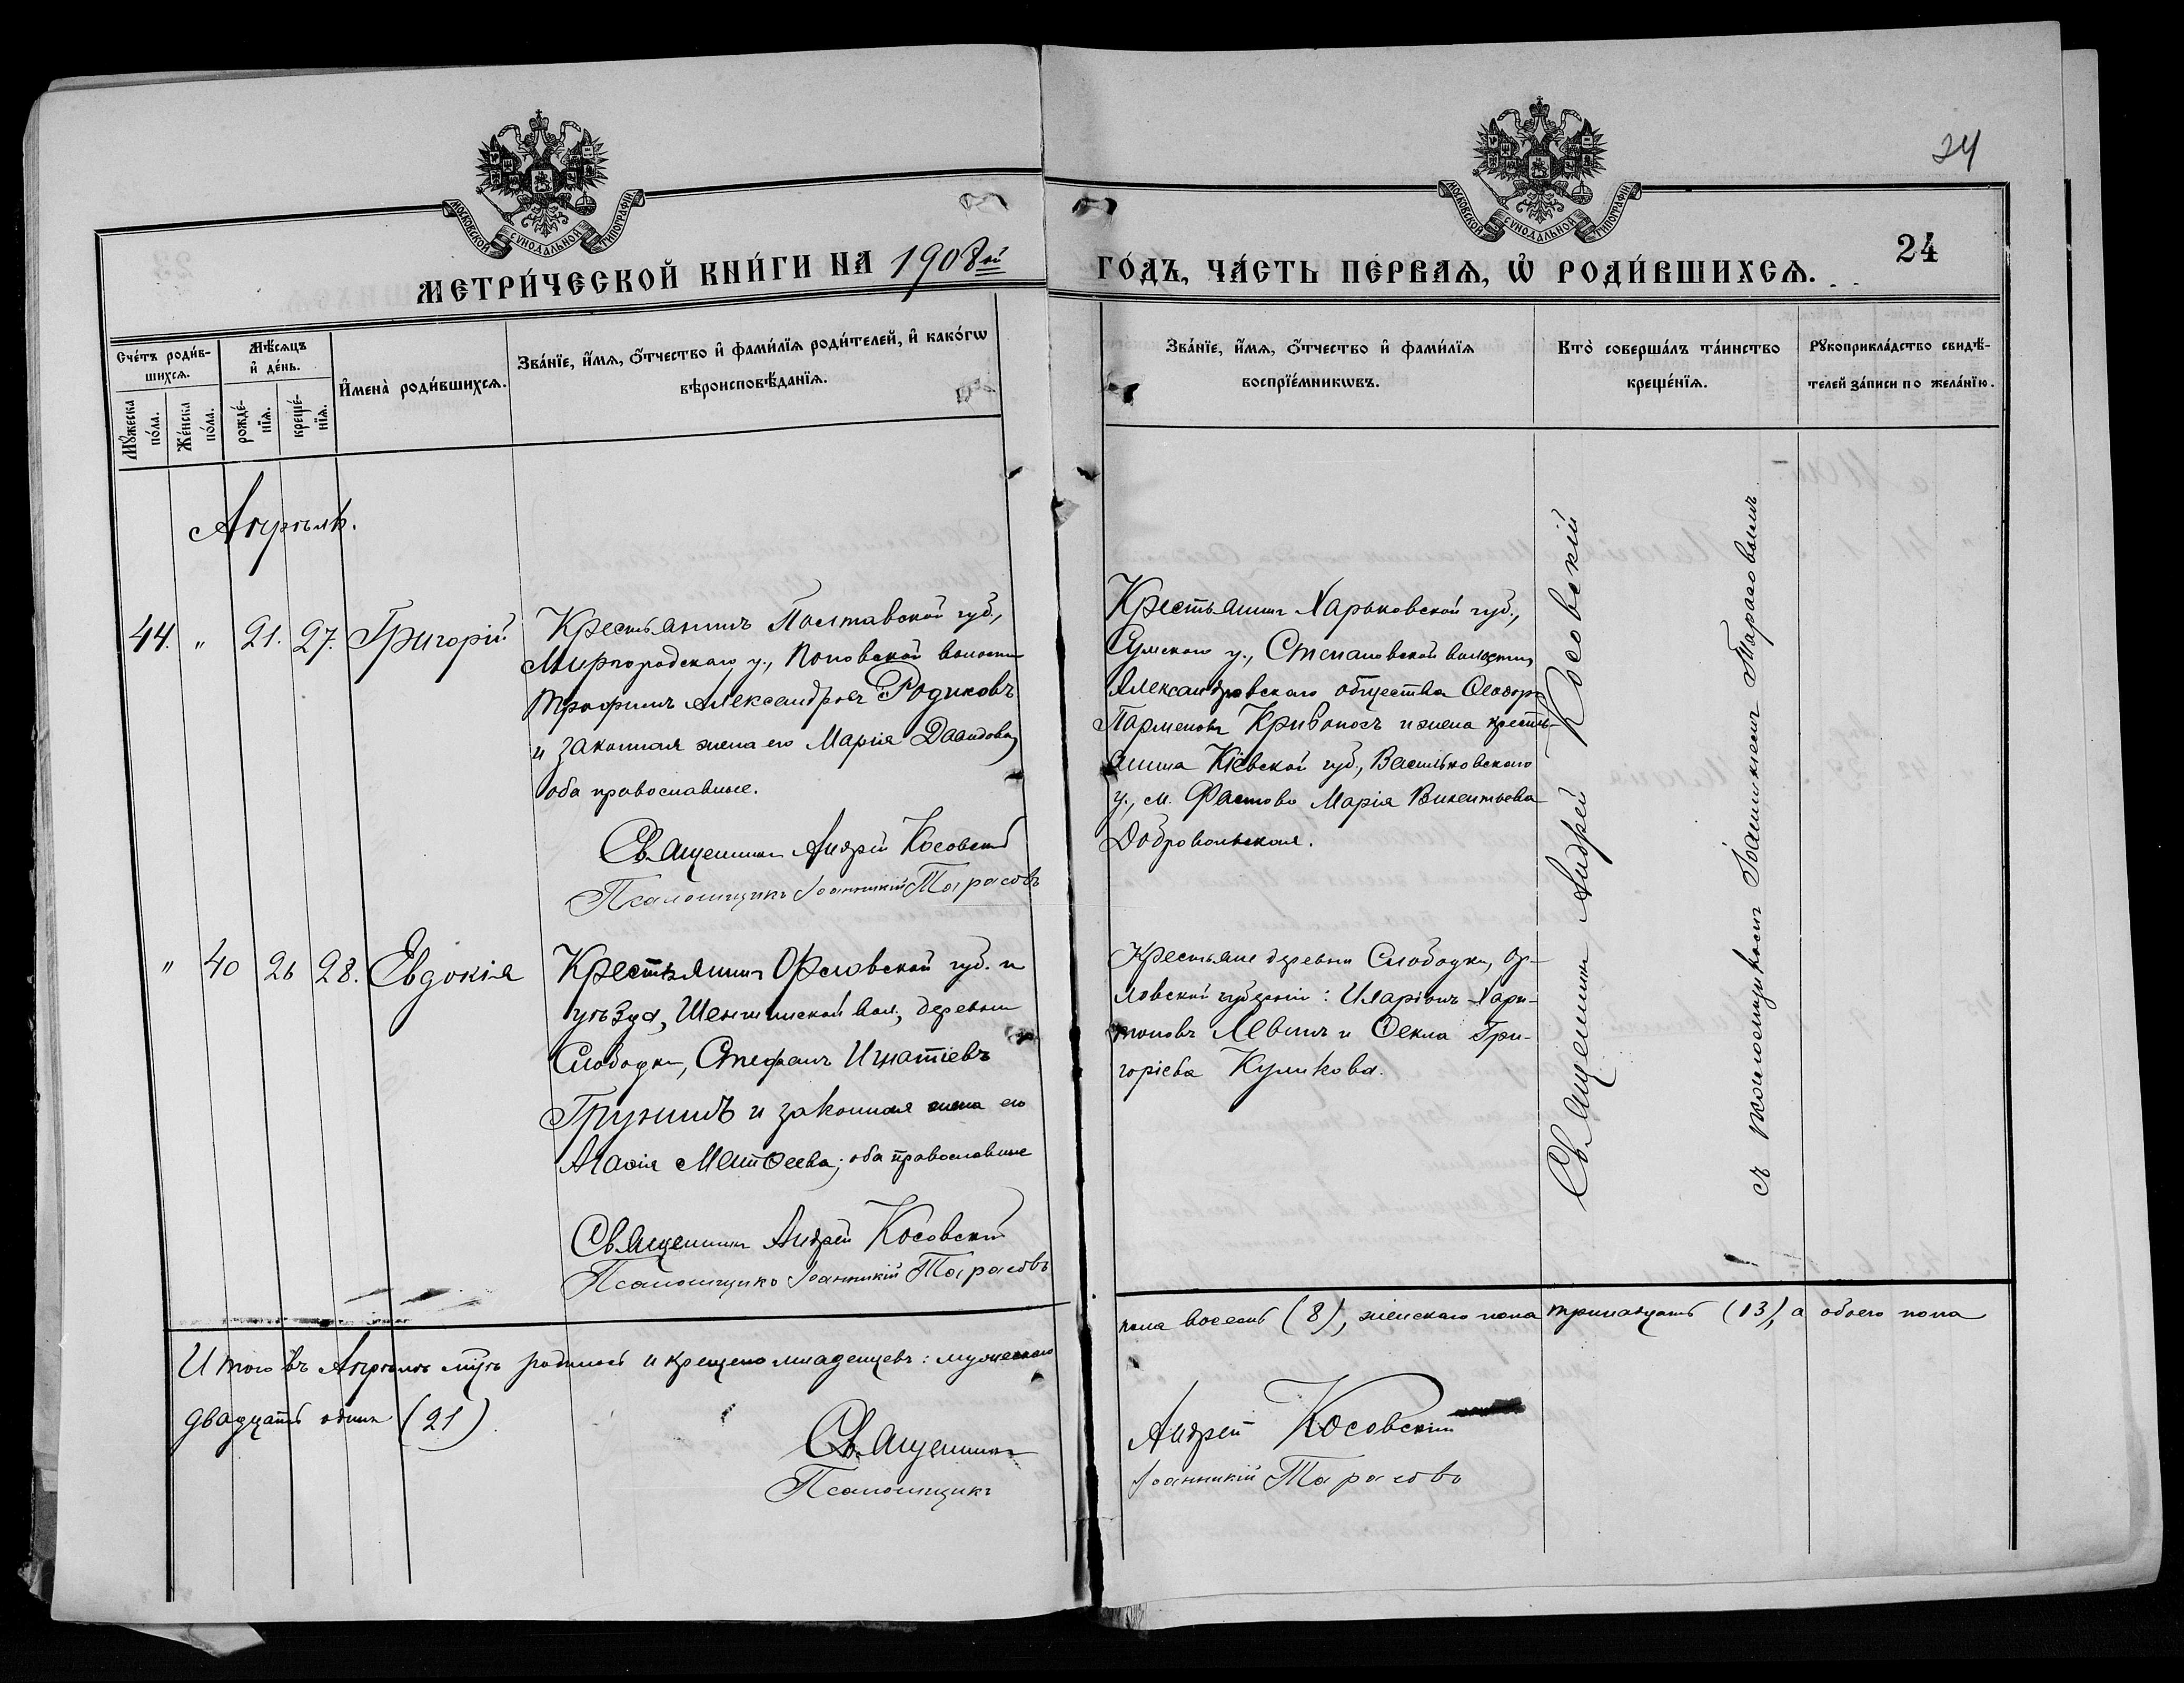 24
МОСКОВСКОЙ СУНОДАЛЬНОЙ ТИПОГРАФІИ
МОСКОВСКОЙ СУНОДАЛЬНОЙ ТИПОГРАФІИ
24
МЕТРИ́ЧЕСКОЙ КНИ́ГИ НА 1908ый
ГО́ДЪ, ЧА́СТЬ ПЕ́РВАѦ, Ѡ҆ РОДИ́ВШИХСѦ.
Сче́тъ роди́в-
шихсѧ.
Мѣ́сѧцъ
и҆ де́нь.
Мꙋ́жеска
по́ла.
Же́нска
по́ла.
рожде́-
нїѧ.
креще́-
нїѧ.
И҆мена̀ роди́вшихсѧ.
Зва́нїе, и҆́мѧ, ѻ҆́тчество и҆ фами́лїѧ роди́телей, и҆ како́гѡ
вѣроисповѣ́данїѧ.
Зва́нїе, и҆́мѧ, ѻ҆́тчество и҆ фами́лїѧ
воспрїе́мникѡвъ.
Кто̀ соверша́лъ та́инство
креще́нїѧ.
Рꙋкоприкла́дство свидѣ́-
телей за́писи по жела́нїю.
Апрѣль.
44. " 21. 27. Григорій
Крестьянинъ Полтавской губ.,
Миргородскаго у., Поповской волости
Трофимъ Александровъ Родиковъ
и законная жена его Марія Давидова,
оба православные.
Священникъ Андрей Косовскій
Псаломщикъ Іоанникій Тарасовъ
Крестьянинъ Харьковской губ.,
Сумскаго у., Степановской волости,
Александровскаго общества Ѳеодоръ
Парменовъ Кривоносъ и жена кресть-
янина Кіевской губ., Васильковскаго
у., м. Фастово Марія Викентьева
Добровольская.
" 40 26 28. Евдокія
Крестьянинъ Орловской губ. и
уѣзда, вол., деревни
Слободки, Стефанъ Игнатіевъ
Грунинъ и законная жена его
Агаѳія Матѳеева; оба православные
Священникъ Андрей Косовскій
Псаломщикъ Іоанникій Тарасовъ
Крестьяне деревни Слободки, Ор-
ловской губерніи: Иларіонъ Хари-
тоновъ Левинъ и Ѳекла Гри-
горіева Куликова.
Священникъ Андрей Косовскій
съ псаломщикомъ Іоанникіемъ Тарасовымъ
Итого въ Апрѣлѣ мцѣ родилось и крещено младенцевъ: мужескаго
пола восемь (8), женскаго пола тринадцать (13), а обоего пола
двадцать одинъ (21).
Священникъ Андрей Косовскій
Псаломщикъ Іоанникій Тарасовъ